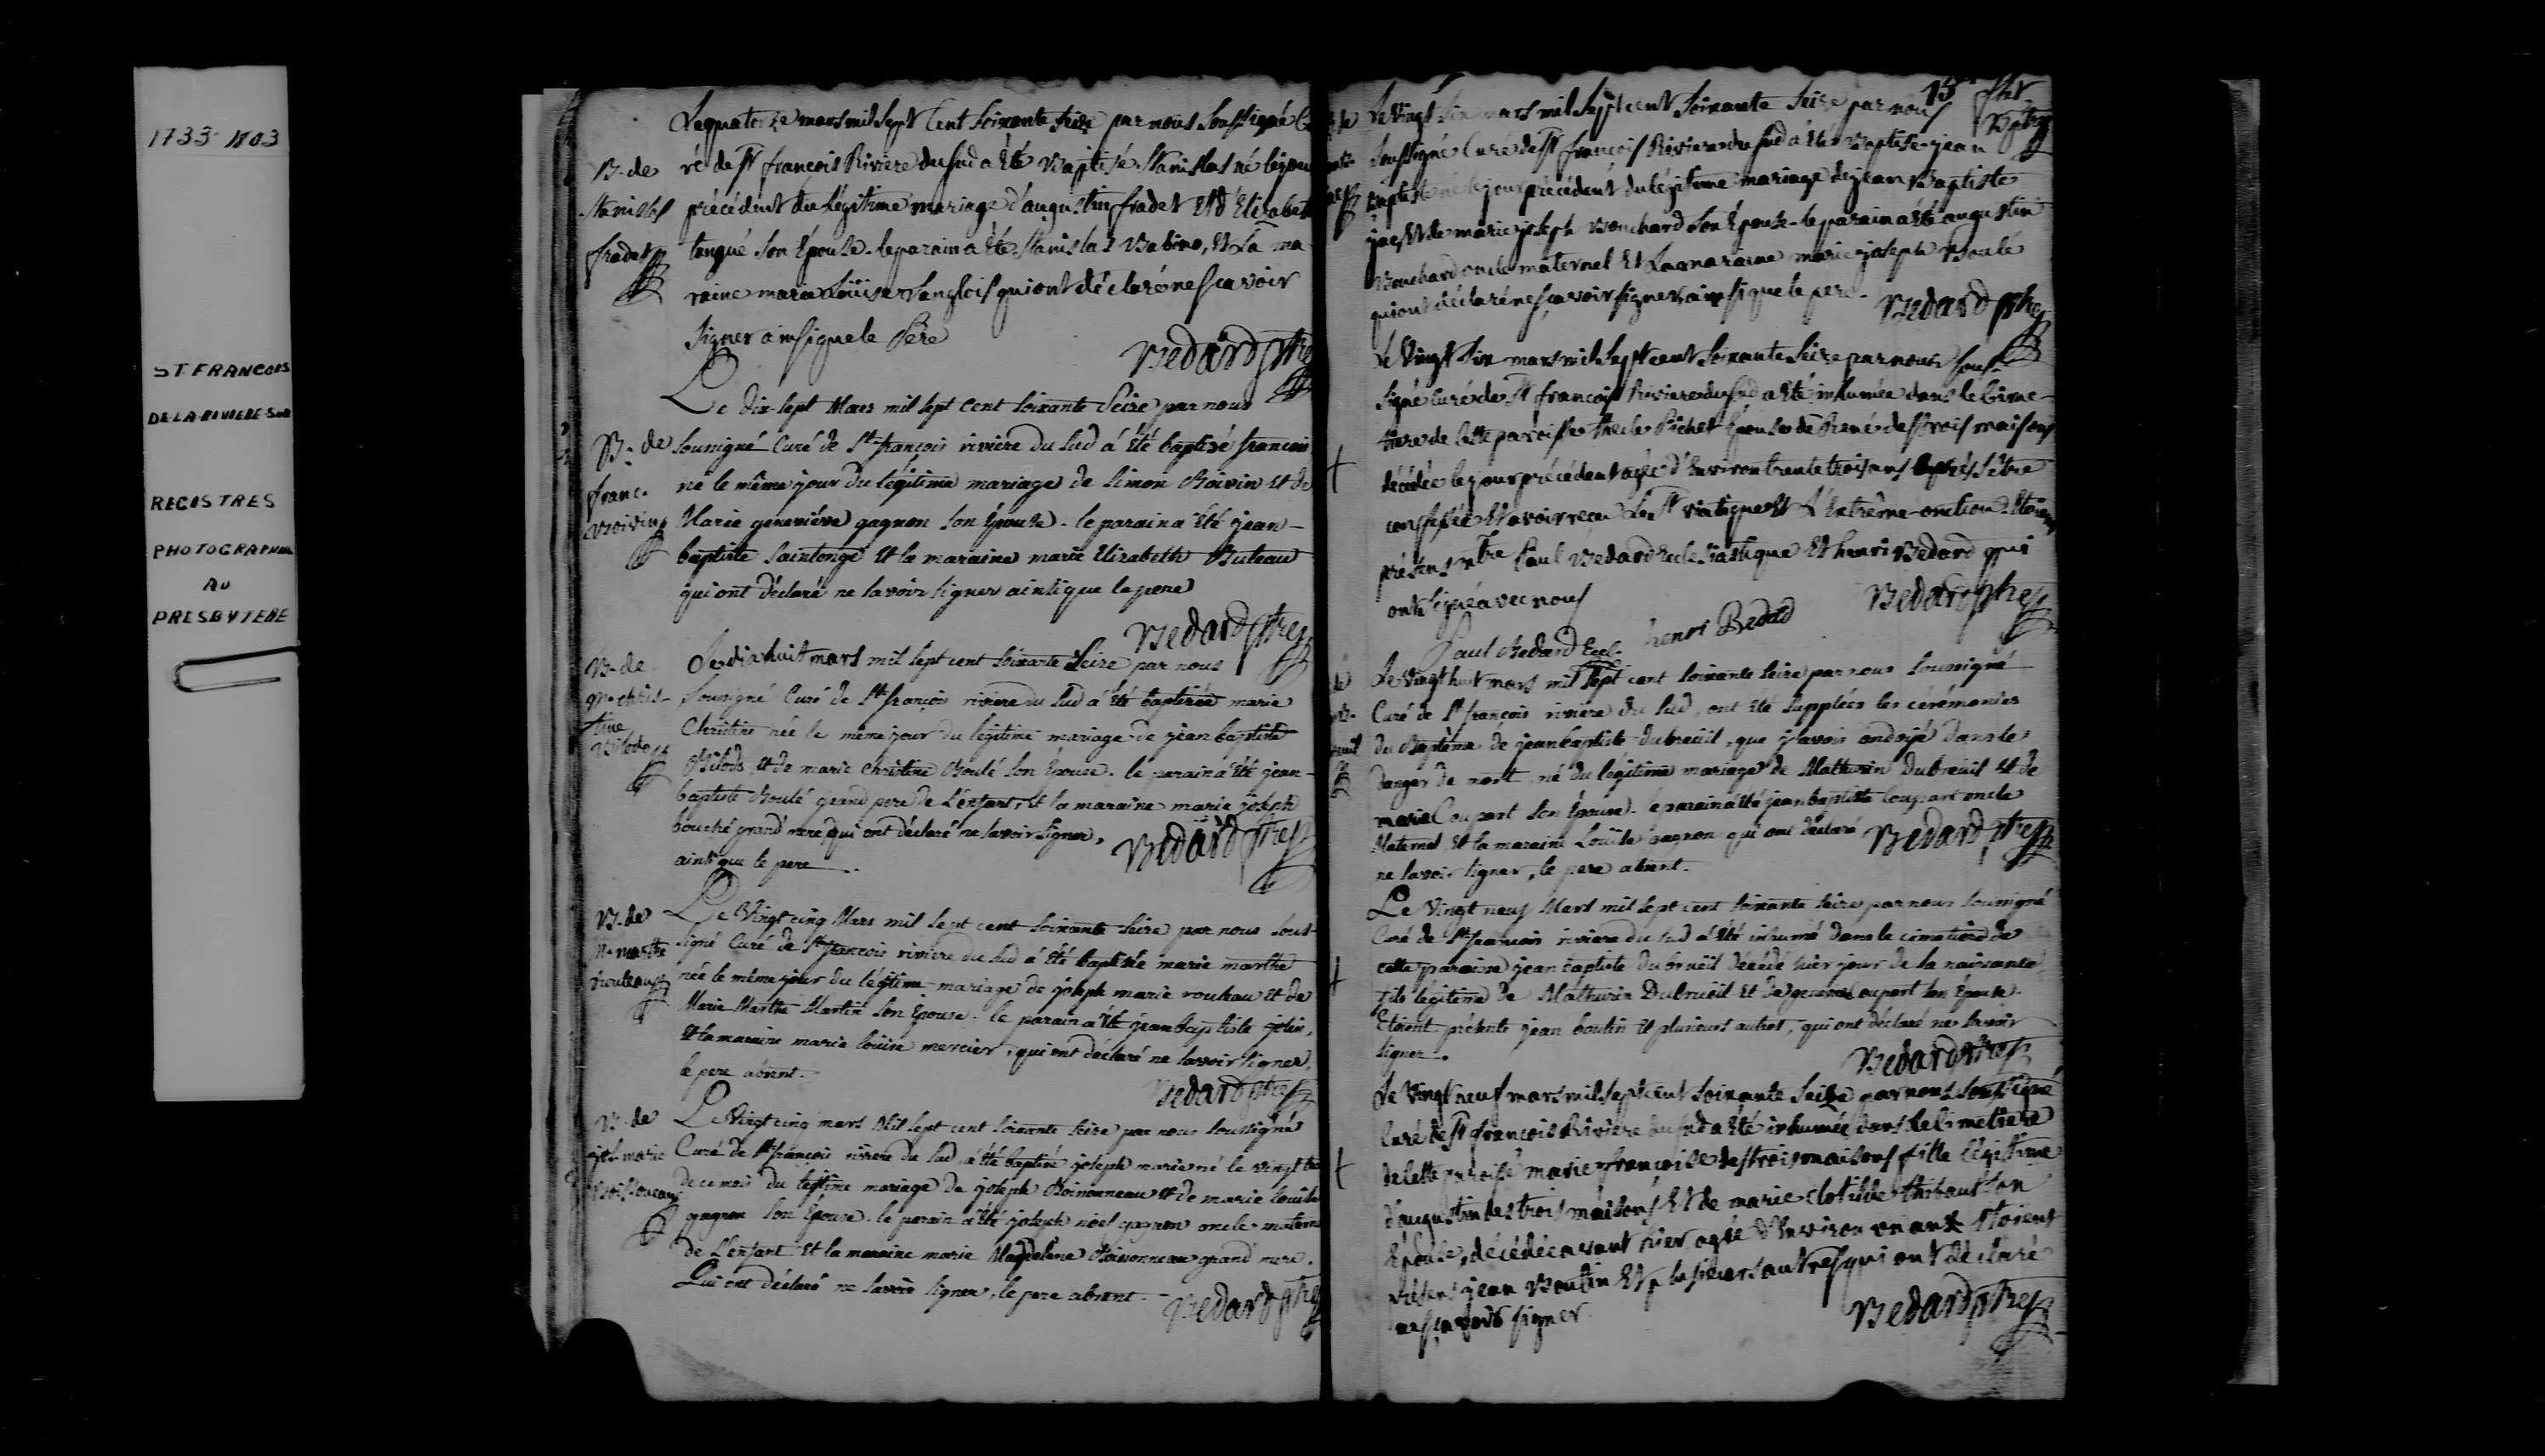 1733 1803
ST. FRANCOIS
DE-LA-RIVIERE-SUD
REGISTRES
PHOTOGRAPHIES
AU
PRESBYTERE
Le quatorze mars mil sept Cent Soixante seize par nous Soussigné Cu
ré de St françois Riviere du Sud a Eté Baptisé Stanislas né le jour
précédent du Légitime mariage d'augustin fradet Et d'Elizabet
tangué Son Epouse. le parain a Eté Stanislas Babino, Et La ma
raine marie Loüise Langlois qui ont déclaré ne sçavoir
Signer ainsi que le Pere
Bedard ptre
B. de
Stanislas
fradet
Le Dix-sept Mars mil sept cent soixante Seize par nous
soussigné Curé de St françois riviere du Sud à été baptisé francois
né le même jour du légitime mariage de Simon Boivin et de
Marie geneviéve gagnon son Epouse. le parain a été jean-
baptiste Saintonge et la maraine marie Elizabeth Buteau
qui ont déclaré ne savoir signer ainsi que le pere
Bedard ptre
B. de
franc.
Boivin
Le dix huit mars mil sept cent soixante Seize par nous
Soussigné Curé de St françois riviere du Sud a été baptisée marie
Christine née le même jour du légitime mariage de jean baptiste
Bilods, et de marie Christine Boulé son Epouse. le parain a été jean-
baptiste Boulé grand pere de L'enfant, et la maraine marie joseph
bouché grand mere, qui ont déclaré ne savoir signer,
ainsi que le pere.
Bedard ptre
B. de
M. chris-
tine
Bilods
Le Vingt cinq Mars mil sept cent soixante seize par nous sous-
signé Curé de St françois riviere du Sud à été baptisée marie marthe
née le même jour du légitime mariage de joseph marie rouleau et de
Marie Marthe Martin son Epouse. le parain a été jean baptiste jolin,
et la maraine marie loüise mercier, qui ont déclaré ne savoir signer,
le pere absent.
Bedard ptre
B. de
M. marthe
Rouleau
Le Vingt cinq mars Mil sept cent soixante seize par nous soussigné
Curé de St françois riviere du Sud à été baptisé joseph marie né le vingt
de ce mois du légitime mariage de joseph Boisonneau et de marie louise
gagnon son Epouse. le parain a été joseph noël gagnon oncle matern
de L'enfant et la maraine marie Magdelene Boisonneau grand mere.
Qui ont déclaré ne savoir signer, le pere absent.
Bedard ptre
B. de
jos. marie
Boisoneau
15
Le Vingt Six mars mil Sept cent Soixante Seize par nous
Soussigné Curé de St françois Riviere du Sud a été Baptisé jean
Baptiste né le jour précédent du légitime mariage de jean Baptiste
et de marie joseph Bouchard Son Epouse. le parain a été augustin
Bouchard oncle maternel Et La maraine marie joseph Boulé
qui ont déclaré ne sçavoir signer, ainsi que le pere.
Bedard ptre
Le Vingt Six mars mil Sept cent Soixante Seize par nous sous-
signé Curé de St françois Riviere du Sud a Eté inhumée dans le Cime-
tiere de Cette paroisse Pichet Epouse de René destrois maisons
décédée le jour précédent agée d'Environ trente trois ans après s'être
confessée Et avoir reçu Le St viatique et L'Extrême-onction. Etoient
présens mtre Paul Bedard Ecclesiastique Et henri Bedard qui
ont signé avec nous
Bedard ptre
Paul Bedard Eccl. henri Bedard
Le Vingt huit mars mil Sept cent soixante seize par nous soussigné
Curé de St françois riviere du Sud, ont été supplées les cérémonies
du Baptême de jean baptiste dubreüil, que j'avois ondoyé dans le
danger de mort, né du légitime mariage de Mathurin Dubreuil et de
marie Coupart son Epouse. le parain a été jean baptiste Coupart oncle
Maternel, et la maraine Loüise gagnon qui ont déclaré
ne savoir signer, le pere absent.
Bedard ptre
Le Vingt neuf Mars mil sept cent soixante seize par nous soussigné
Curé de St françois riviere du Sud a été inhumé dans le cimetiere de
cette paroisse jean baptiste dubreüil décédé hier jour de sa naissance,
fils légitime de Mathurin Dubreüil et de Coupart son Epouse.
Etoient présents jean boutin et plusieurs autres, qui ont déclaré ne savoir
signer.
Bedard ptre
Le Vingt neuf mars mil sept cent soixante Seize par nous Soussigné
Curé de St françois Riviere du Sud a Eté inhumée dans le Cimetiere
de Cette paroisse marie françoise destroismaisons fille légitime
d'augustin destrois maisons Et de marie Clotilde thibaut son
Epouse, décédée avant hier agée d'Environ un an. Etoient
présens jean Boutin Et plusieurs autres qui ont déclaré
ne sçavoir signer.
Bedard ptre